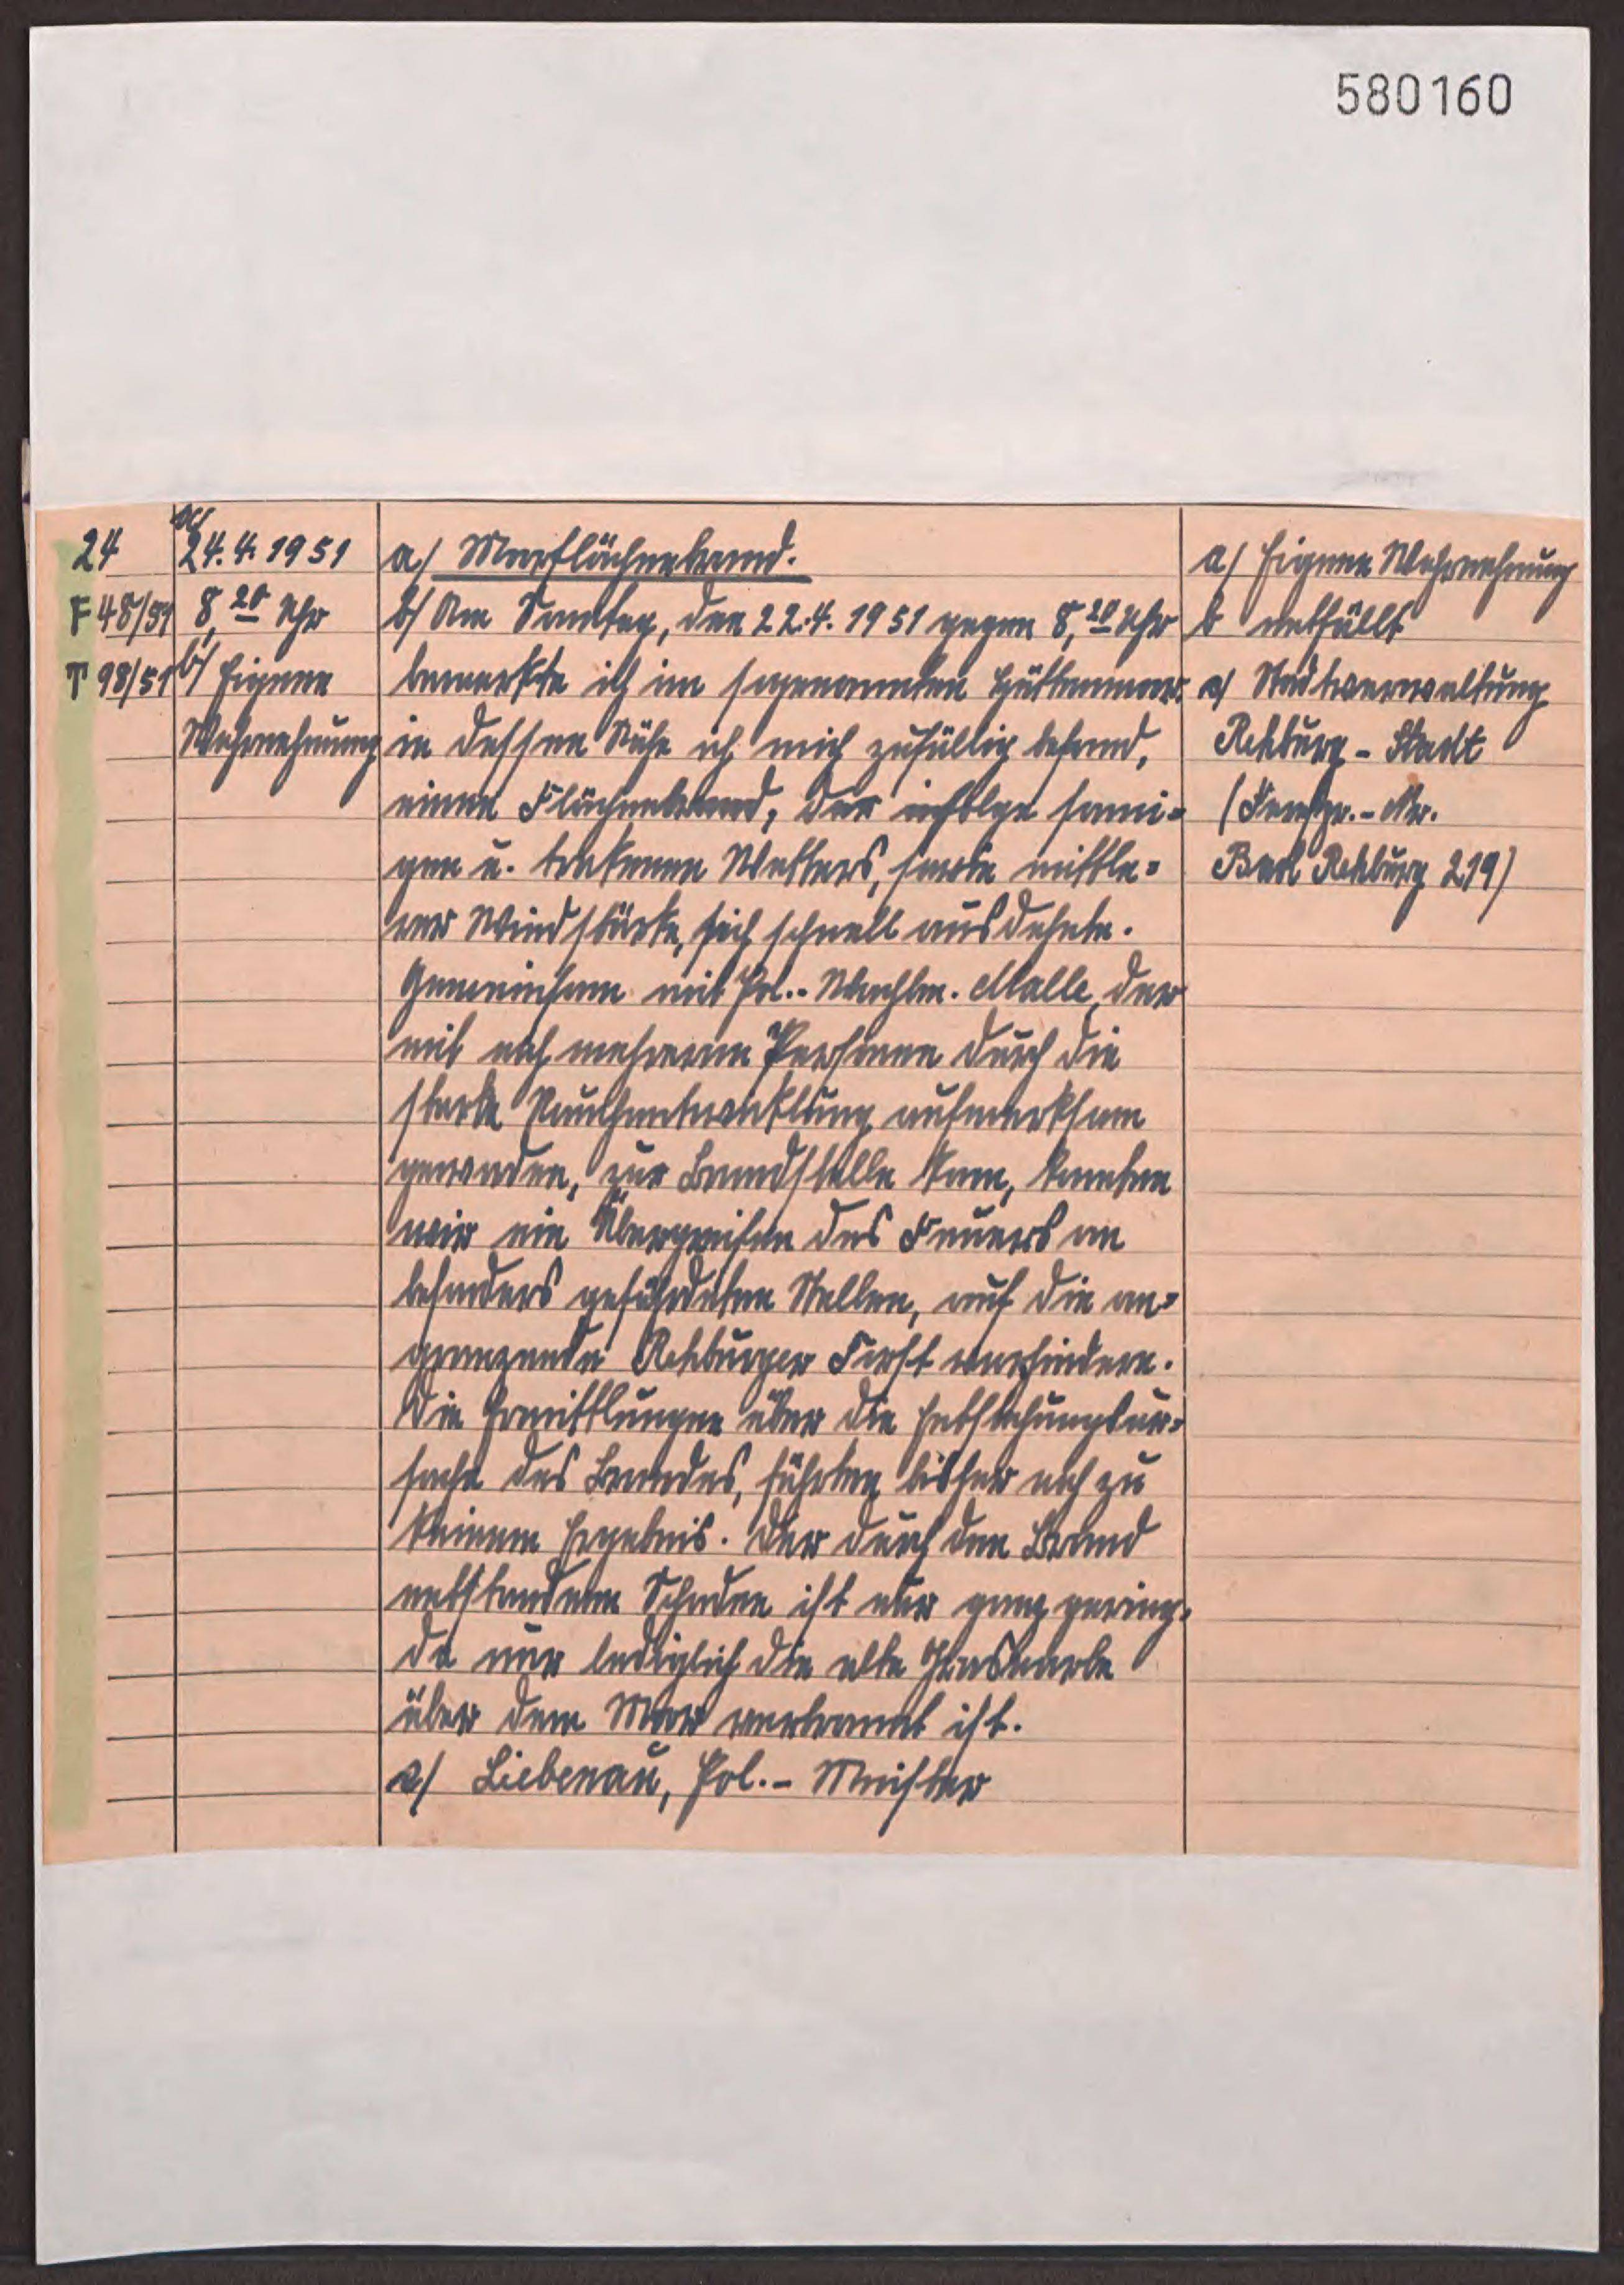 580160
24
F 48/51
T 98/51
a/
24.4.1951
8,20 Uhr
b/ Eigene
Wahrnehmung
a/ Moorflächenbrand.
b/ Am Sonntag, den 22.4.1951 gegen 8,20 Uhr
bemerkte ich im sogenannten Hüttenmoor
in dessen Nähe ich mich zufällig befand,
einen Flächenbrand, der infolge sonni=
gen u. trokenen Wetters, sowie mittle=
rer Windstärke, sich schnell ausdehnte.
Gemeinsam mit Pol.-Wachtm. Malle, der
mit noch mehreren Personen durch die
starke Rauchentwicklung aufmerksam
geworden, zur Brandstelle kam, konnten
wir ein Übergreifen des Feuers an
besonders gefährdeten Stellen, auf die an=
grenzende Rehburger Forst verhindern.
Die Ermittlungen über die Entstehungsur=
sache des Brandes, führten bisher noch zu
keinem Ergebnis. Der durch den Brand
entstandene Schaden ist nur ganz gering,
da nur lediglich die alte Grasnarbe
über dem Moor verbrannt ist.
c/ Liebenau, Pol.- Meister
a/ Eigene Wahrnehmung
b entfällt
c/ Stadtverwaltung
Rehburg - Stadt
(Fernspr.-Nr.
Bad Rehburg 219)